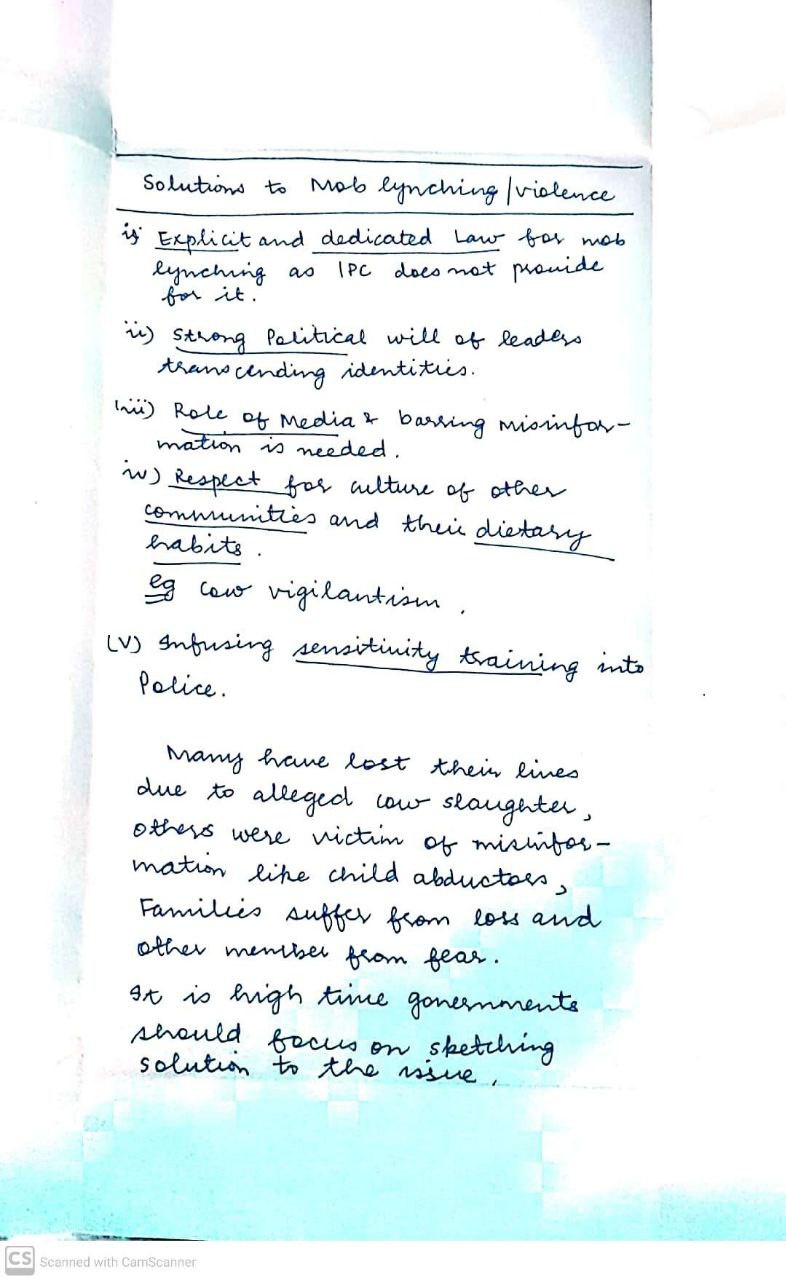 Solutions to Mob lynching/violence
i) Explicit and dedicated Law for mob
lynching as IPC does not provide
for it.
ii) Strong Political will of leaders
transcending identities.
iii) Role of Media & barring misinfor-
mation is needed.
iv) Respect for culture of other
communities and their dietary
habits.
eg cow vigilantism.
(V) Infusing sensitivity training into
Police.
Many have lost their lives
due to alleged cow slaughter,
others were victim of misinfor-
mation like child abductors,
Families suffer from loss and
other member from fear.
It is high time governments
should focus on sketching
solution to the issue.
CS Scanned with CamScanner